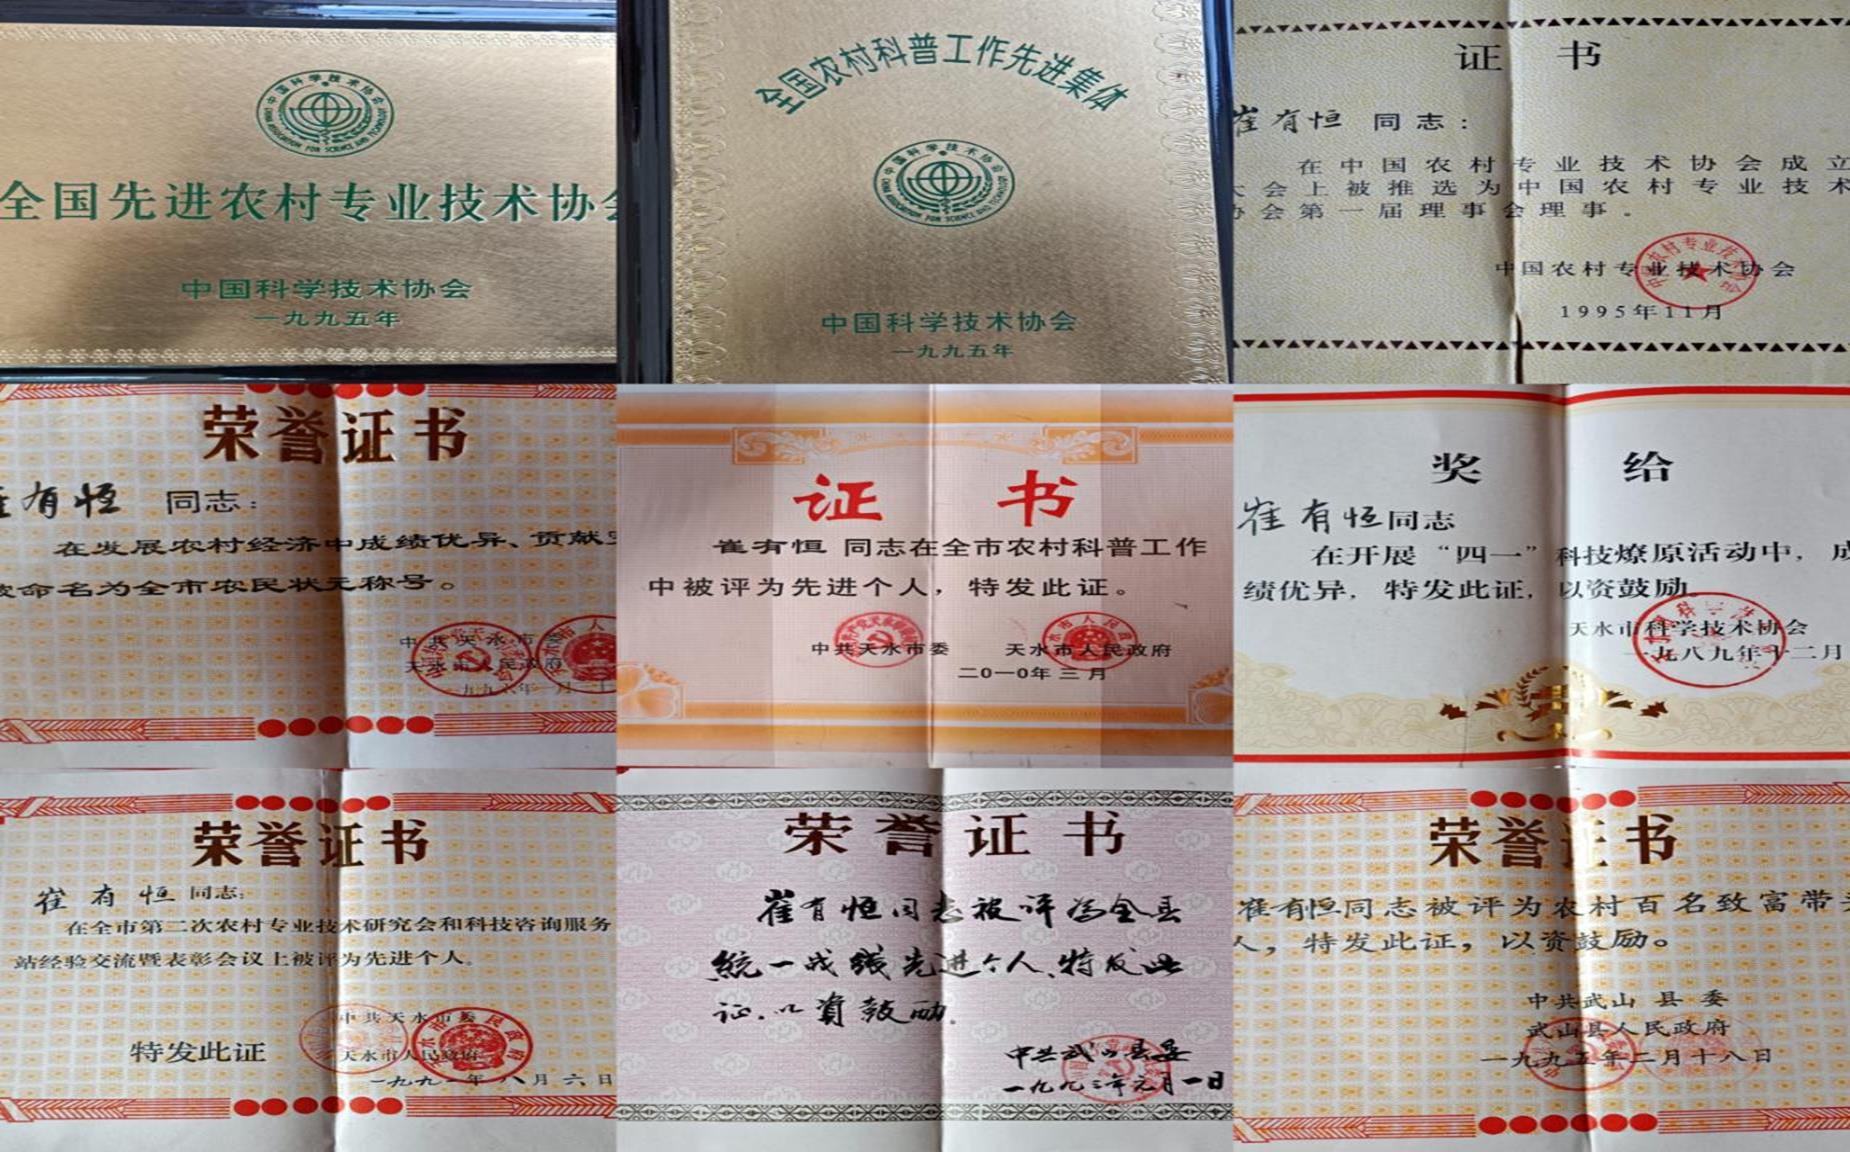 中国科学技术协会
CHINA ASSOCIATION FOR SCIENCE AND TECHNOLOGY
全国先进农村专业技术协会
中国科学技术协会
一九九五年
全国农村科普工作先进集体
中国科学技术协会
CHINA ASSOCIATION FOR SCIENCE AND TECHNOLOGY
中国科学技术协会
一九九五年
证 书
崔有恒 同志：
在中国农村专业技术协会成立
大会上被推选为中国农村专业技术
协会第一届理事会理事。
中国农村专业技术协会
1995年11月
荣誉证书
崔有恒 同志：
在发展农村经济中成绩优异、贡献
被命名为全市农民状元称号。
中共天水市委
天水市人民政府
证 书
崔有恒 同志在全市农村科普工作
中被评为先进个人，特发此证。
中共天水市委 天水市人民政府
二0一0年三月
奖 给
崔有恒同志
在开展“四一”科技燎原活动中，成
绩优异，特发此证，以资鼓励。
天水市科学技术协会
一九八九年十二月
荣誉证书
崔有恒同志：
在全市第二次农村专业技术研究会和科技咨询服务
站经验交流暨表彰会议上被评为先进个人。
特发此证
中共天水市委
天水市人民政府
一九九一年八月六日
荣誉证书
崔有恒同志被评为全县
统一战线先进个人、特发此
证.以资鼓励.
中共武山县委
一九九三年元月一日
荣誉证书
崔有恒同志被评为农村百名致富带头
人，特发此证，以资鼓励。
中共武山县委
武山县人民政府
一九九五年二月十八日